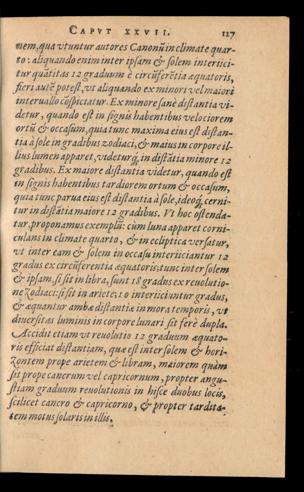 CAPVT XXVII. 127
nem, qua vtuntur autores Canonũ in climate quar-
to: aliquando enim inter ipsam & solem interiici-
tur quãtitas 12 graduum è circũferẽtia æquatoris,
fieri autẽ potest, vt aliquando ex minori vel maiori
interuallo cõspiciatur. Ex minore sanè distantia vi-
detur, quando est in signis habentibus velociorem
ortũ & occasum, quia tunc maxima eius est distan-
tia à sole in gradibus zodiaci, & maius in corpore il-
lius lumen apparet, videturq́, in distãtia minore 12
gradibus. Ex maiore distantia videtur, quando est
in signis habentibus tardiorem ortum & occasum,
quia tunc parua eius est distantia à sole, ideoq́, cerni-
tur in distãtia maiore 12 gradibus. Vt hoc ostenda-
tur, proponamus exemplũ: cùm luna apparet corni-
culans in climate quarto, & in ecliptica versatur,
vt inter eam & solem in occasu interiiciantur 12
gradus ex circũferentia æquatoris: tunc inter solem
& ipsam, si sit in libra, sunt 18 gradus ex reuolutio-
ne zodiaci: si sit in ariete, 10 interiiciuntur gradus,
& æquantur ambæ distantiæ in mora temporis, vt
diuersitas luminis in corpore lunari sit ferè dupla.
Accidit etiam vt reuolutio 12 graduum æquato-
ris efficiat distantiam, quæ est inter solem & hori-
zontem prope arietem & libram, maiorem quàm
sit prope cancrum vel capricornum, propter angu-
stiam graduum reuolutionis in hisce duobus locis,
scilicet cancro & capricorno, & propter tardita-
tem motus solaris in illis.